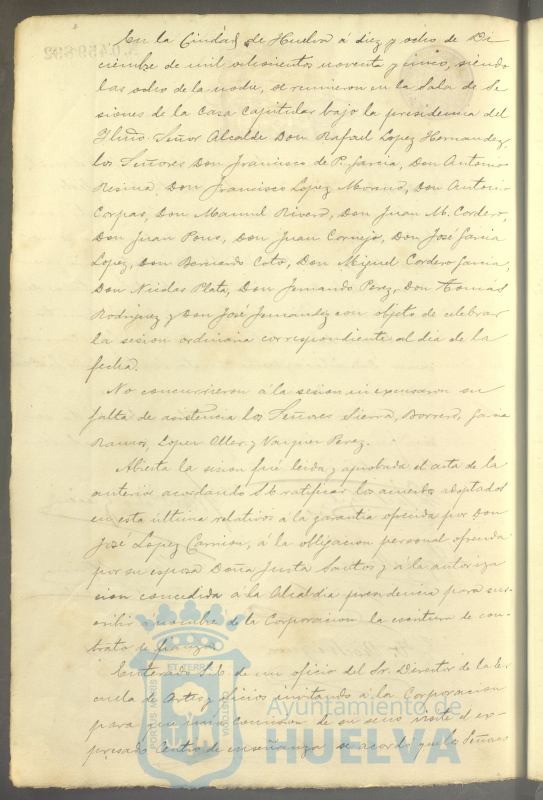 En la Ciudad de Huelva a diez y ocho de Di-
ciembre de mil ochocientos noventa y cinco, siendo
las ocho de la noche, se reunieron en la Sala de Se-
siones de la Casa Capitular bajo la presidencia del
Iltmo. Señor Alcalde Don Rafael Lopez Hernandez,
los Señores Don Francisco de P. Garcia, Don Antonio
Resina, Don Francisco Lopez Moreno, Don Antonio
Corpas, Don Manuel Rivero, Don Juan M. Cordero,
Don Juan Pons, Don Juan Cornejo, Don José Garcia
Lopez, Don Bernardo Coto, Don Miguel Cordero Garcia,
Don Nicolas Plata, Don Fernando Perez, Don Tomas
Rodriguez y Don José Fernandez con objeto de celebrar
la sesion ordinaria correspondiente al dia de la
fecha.
No concurrieron á la sesion ni excusaron su
falta de asistencia los Señores Sierra, Borrero, Garcia
Ramos, Lopez Oller y Vazquez Perez.
Abierta la sesion fué leida y aprobada el acta de la
anterior acordando S.E. ratificar los acuerdos adoptados
en esta última relativos á la garantia ofrecida por Don
José Lopez Carrion, á la obligacion personal ofrecida
por su esposa Doña Justa Santos y á la autoriza
cion concedida á la Alcaldia presidencia para sus-
cribir a nombre de la Corporacion la escritura de con-
trato de fianza.
Enterado S.E. de un oficio del Sr. Director de la Es-
cuela de Artes y Oficios invitando á la Corporacion
para que una comision de su seno visite el ex-
presado Centro de enseñanza se acordó que los Señores
0.459.832
Ayuntamiento de
HUELVA